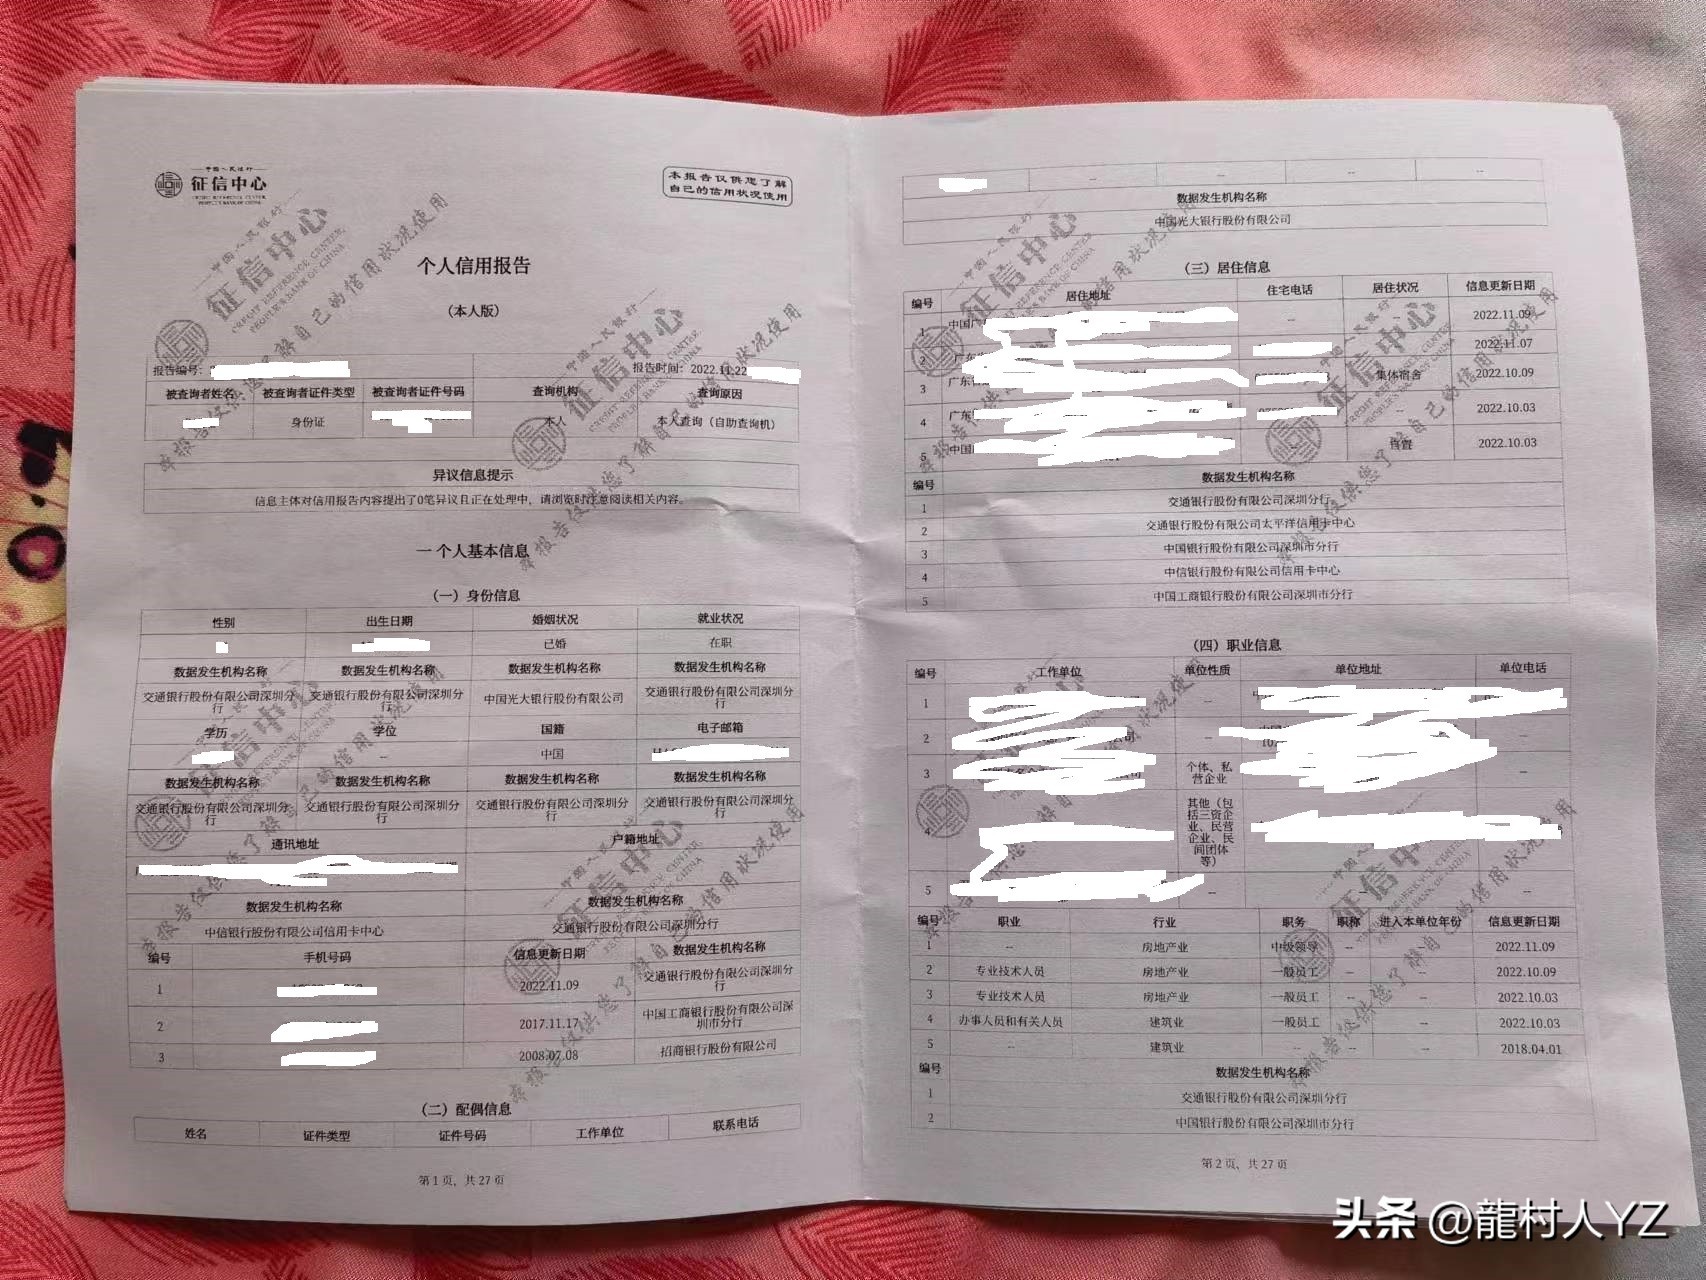 中国人民银行
征信中心
CREDIT REFERENCE CENTER
PEOPLE'S BANK OF CHINA
本报告仅供您了解
自己的信用状况使用
个人信用报告
（本人版）
报告编号: 报告时间: 2022.11.22
被查询者姓名 被查询者证件类型 被查询者证件号码 查询机构 查询原因
身份证 本人 本人查询（自助查询机）
异议信息提示
信息主体对信用报告内容提出了0笔异议且正在处理中，请浏览时注意阅读相关内容。
一 个人基本信息
（一）身份信息
性别 出生日期 婚姻状况 就业状况
已婚 在职
数据发生机构名称 数据发生机构名称 数据发生机构名称 数据发生机构名称
交通银行股份有限公司深圳分行 交通银行股份有限公司深圳分行 中国光大银行股份有限公司 交通银行股份有限公司深圳分行
学历 学位 国籍 电子邮箱
-- 中国
数据发生机构名称 数据发生机构名称 数据发生机构名称 数据发生机构名称
交通银行股份有限公司深圳分行 交通银行股份有限公司深圳分行 交通银行股份有限公司深圳分行 交通银行股份有限公司深圳分行
通讯地址 户籍地址
数据发生机构名称 数据发生机构名称
中信银行股份有限公司信用卡中心 交通银行股份有限公司深圳分行
编号 手机号码 信息更新日期 数据发生机构名称
1 2022.11.09 交通银行股份有限公司深圳分行
2 2017.11.17 中国工商银行股份有限公司深圳市分行
3 2008.07.08 招商银行股份有限公司
（二）配偶信息
姓名 证件类型 证件号码 工作单位 联系电话
第 1 页，共 27 页
-- -- -- --
数据发生机构名称
中国光大银行股份有限公司
（三）居住信息
编号 居住地址 住宅电话 居住状况 信息更新日期
1 中国广 -- -- 2022.11.09
2 广东 2022.11.07
3 广东 集体宿舍 2022.10.09
4 广东 -- 2022.10.03
5 中国 自置 2022.10.03
编号 数据发生机构名称
1 交通银行股份有限公司深圳分行
2 交通银行股份有限公司太平洋信用卡中心
3 中国银行股份有限公司深圳市分行
4 中信银行股份有限公司信用卡中心
5 中国工商银行股份有限公司深圳市分行
（四）职业信息
编号 工作单位 单位性质 单位地址 单位电话
1 --
2 -- --
3 个体、私营企业 --
4 其他（包括三资企业、民营企业、民间团体等）
5 -- --
编号 职业 行业 职务 职称 进入本单位年份 信息更新日期
1 -- 房地产业 中级领导 -- -- 2022.11.09
2 专业技术人员 房地产业 一般员工 -- -- 2022.10.09
3 专业技术人员 房地产业 一般员工 -- -- 2022.10.03
4 办事人员和有关人员 建筑业 一般员工 -- -- 2022.10.03
5 -- 建筑业 -- -- -- 2018.04.01
编号 数据发生机构名称
1 交通银行股份有限公司深圳分行
2 中国银行股份有限公司深圳市分行
第 2 页，共 27 页
头条 @龍村人YZ